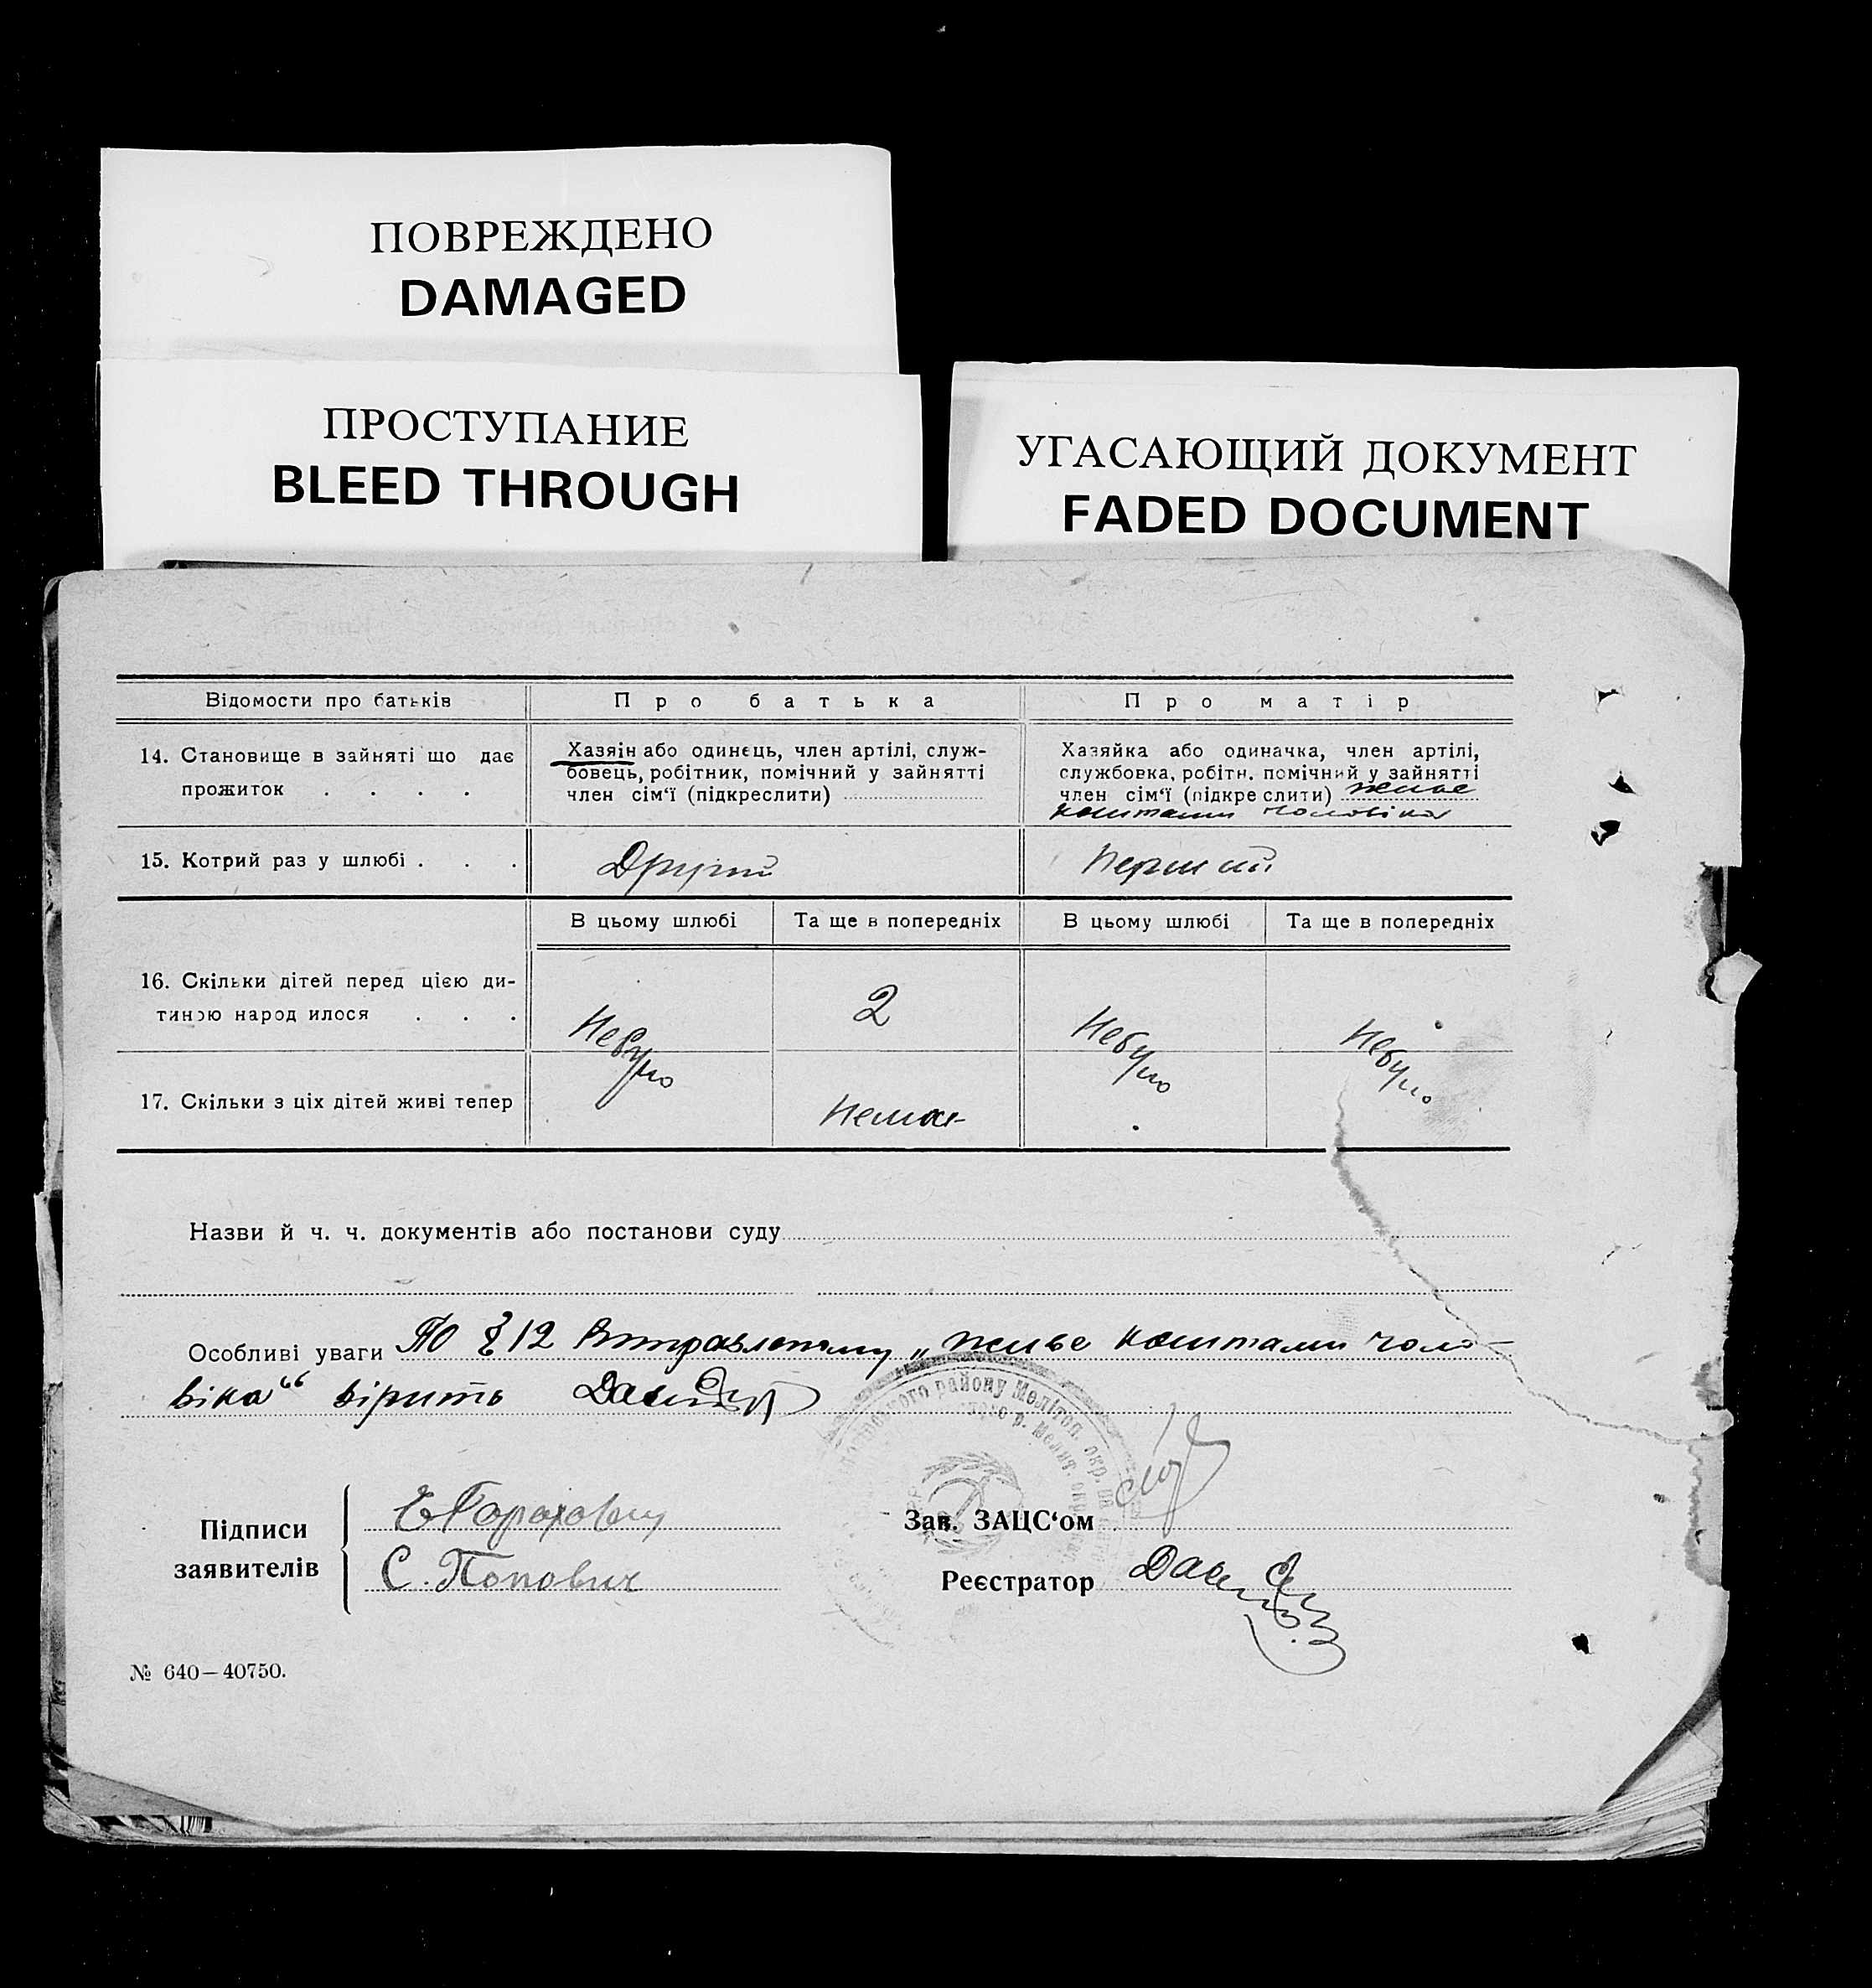 ПОВРЕЖДЕНО
DAMAGED
ПРОСТУПАНИЕ
BLEED THROUGH
УГАСАЮЩИЙ ДОКУМЕНТ
FADED DOCUMENT
Відомости про батьків
Про батька
Про матір
14. Становище в зайняті що дає
прожиток . . . .
Хазяін або одинець, член артілі, служ-
бовець, робітник, помічний у зайнятті
член сім‘ї (підкреслити)
Хазяйка або одиначка, член артілі,
службовка, робітн. помічний у зайнятті
член сім‘ї (підкреслити) живе
коштами чоловіка
15. Котрий раз у шлюбі . . .
Другий
Перший
В цьому шлюбі
Та ще в попередніх
В цьому шлюбі
Та ще в попередніх
16. Скільки дітей перед цією ди-
тиною народилося . . .
Небуло
2
Небуло
Небуло
17. Скільки з ціх дітей живі тепер
Немає
Назви й ч. ч. документів або постанови суду
Особливі уваги По § 12 „живе коштами чоло-
віка“ вірить
району Мелітоп. окр.
Підписи
заявителів
С. Попович
Зав. ЗАЦС‘ом
Реєстратор
№ 640—40750.